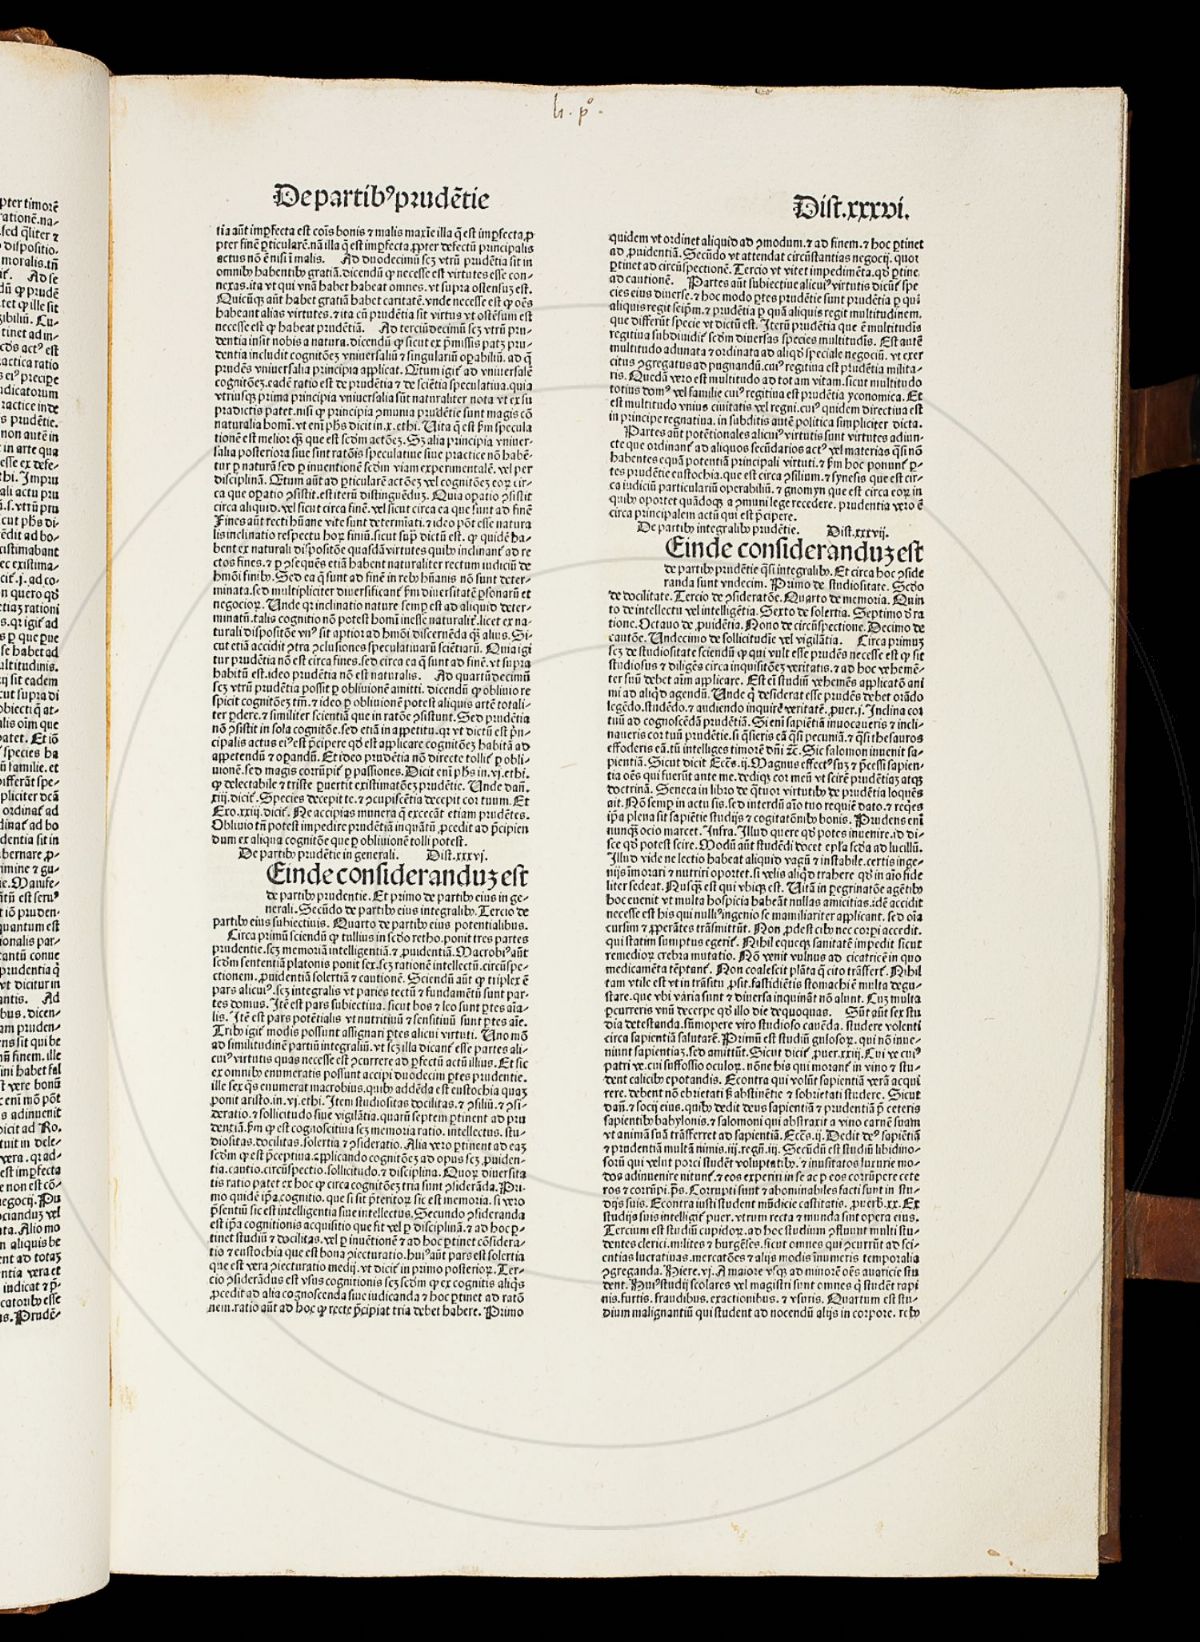 h. p°.
De partibꝰ prudẽtie
Dist.xxxvi.
tia aũt imꝑfecta est cõis bonis ⁊ malis maxĩe illa q̃ est imꝑfecta ꝓ
pter finẽ ꝑticularẽ.nã illa q̃ est imꝑfecta ꝓpter defectũ principalis
actus nõ ẽ nisi ĩ malis. Ad duodecimũ scꝫ vtrũ prudẽtia sit in
omnibꝫ habentibꝫ gratiã.dicendũ ꝙ necesse est virtutes esse con-
nexas.ita vt qui vnã habet habeat omnes.vt supra ostensuꝫ est.
Quicũqꝫ aũt habet gratiã habet caritatẽ.vnde necesse est ꝙ oẽs
habeant alias virtutes.⁊ ita cũ prudẽtia sit virtus vt ostẽsum est
necesse est ꝙ habeat prudẽtiã. Ad terciũdecimũ scꝫ vtrũ pru-
dentia insit nobis a natura.dicendũ ꝙ sicut ex ꝑmissis patꝫ pru-
dentia includit cognitiõeꝫ vniuersaliũ ⁊ singulariũ oꝑabiliũ. ad q̃
prudẽs vniuersalia principia applicat. Q̃tum igit᷑ ad vniuersalẽ
cognitõeꝫ.eadẽ ratio est de prudẽtia ⁊ de sciẽtia speculatiua.quia
vtriusqꝫ prima principia vniuersalia sũt naturaliter nota vt ex su
pradictis patet.nisi ꝙ principia ↄmunia prudẽtie sunt magis cõ
naturalia homĩ.vt eni᷑ ph̃s dicit in.x.ethi. Uita q̃ est ẜm specula
tionẽ est melior qꝫ que est scdm actõeꝫ. Sꝫ alia principia vniuer-
salia posteriora siue sint ratõis speculatiue siue practice nõ habẽ-
tur ꝑ naturã sed ꝑ inuentionẽ scdm viam experimentalẽ.vel per
disciplinã. Q̃tum aũt ad ꝑticularẽ actõeꝫ vel cognitõeꝫ eoꝝ cir-
ca que oꝑatio ↄsistit.est iterũ distinguẽduꝫ. Quia oꝑatio ↄsistit
circa aliquid.vel sicut circa finẽ.vel sicut circa ea que sunt ad finẽ
Fines aũt recti hũane vite sunt determiati.⁊ ideo põt esse natura
lis inclinatio respectu hoꝝ finiũ.sicut supͣ dictũ est. ꝙ quidẽ ha-
bent ex naturali dispositõe quasdã virtutes quibꝫ inclinant᷑ ad re
ctos fines.⁊ ꝑ ↄsequẽs etiã habent naturaliter rectum iudiciũ de
hmõi finibꝫ. Sed ea q̃ sunt ad finẽ in rebꝫ hũanis nõ sunt deter-
minata.sed multipliciter diuersificant᷑ ẜm diuersitatẽ ꝑsonarũ et
negocioꝝ. Unde qꝛ inclinatio nature semꝑ est ad aliquid deter-
minatũ.talis cognitio nõ potest homĩ inesse naturalit᷑.licet ex na-
turali dispositõe vnꝰ sit aptior ad hmõi discernẽda qꝫ alius. Si-
cut etiã accidit ↄtra ↄclusiones speculatiuarũ sciẽtiarũ. Quia igi
tur prudẽtia nõ est circa fines.sed circa ea q̃ sunt ad finẽ.vt supra
habitũ est.ideo prudẽtia nõ est naturalis. Ad quartũdecimũ
scꝫ vtrũ prudẽtia possit ꝑ obliuionẽ amitti. dicendũ ꝙ obliuio re
spicit cognitõeꝫ tm̃.⁊ ideo ꝑ obliuionẽ potest aliquis artẽ totali-
ter ꝑdere.⁊ similiter scientiã que in ratõe ↄsistunt. Sed prudẽtia
nõ ↄsistit in sola cognitõe.sed etiã in appetitu.qꝛ vt dictũ est prĩ-
cipalis actus eiꝰ est p̃cipere qđ est applicare cognitõeꝫ habitã ad
appetendũ ⁊ oꝑandũ. Et ideo prudẽtia nõ directe tollit᷑ ꝑ obli-
uionẽ.sed magis corrũpit᷑ ꝑ passiones. Dicit eni᷑ ph̃s in.vj.ethi.
ꝙ delectabile ⁊ triste ꝑuertit existimatõeꝫ prudẽtie. Unde dañ.
xiij.dicit᷑. Species decepit te.⁊ ↄcupiscẽtia decepit cor tuum. Et
Exo.xxiij.dicit᷑. Ne accipias munera q̃ excecãt etiam prudẽtes.
Obliuio tñ potest impedire prudẽtiã inquãtũ ꝓcedit ad p̃cipien
dum ex aliqua cognitõe que ꝑ obliuionẽ tolli potest.
De partibꝫ prudẽtie in generali. Dist.xxxvj.
Einde consideranduꝫ est
de partibꝫ prudentie. Et primo de partibꝫ eius in ge-
nerali. Secũdo de partibꝫ eius integralibꝫ. Tercio de
partibꝫ eius subiectiuis. Quarto de partibꝫ eius potentialibus.
Circa primũ sciendũ ꝙ tullius in scđo retho.ponit tres partes
prudentie.scꝫ memoriã intelligentiã.⁊ ꝓuidentiã. Macrobiꝰ aũt
scdm sententiã platonis ponit sex.scꝫ rationẽ intellectũ.circũspe-
ctionem.ꝓuidentiã solertiã ⁊ cautionẽ. Sciendũ aũt ꝙ triplex ẽ
pars alicuiꝰ.scꝫ integralis vt paries tectũ ⁊ fundamẽtũ sunt par-
tes domus. Itẽ est pars subiectiua.sicut bos ⁊ leo sunt ꝑtes aĩa-
lis. Itẽ est pars potẽtialis vt nutritiuũ ⁊ sensitiuũ sunt ꝑtes aĩe.
Tribꝫ igit᷑ modis possunt assignari ꝑtes alicui virtuti. Uno mõ
ad similitudinẽ partiũ integraliũ.vt scꝫ illa dicant᷑ esse partes ali-
cuiꝰ virtutis quas necesse est ↄcurrere ad ꝑfectũ actũ illius. Et sic
ex omnibꝫ enumeratis possunt accipi duodecim ꝑtes prudentie.
ille sex q̃s enumerat macrobius.quibꝫ addẽda est eustochia quaꝫ
ponit aristo.in.vj.ethi. Item studiositas docilitas.⁊ ↄsiliũ.⁊ ↄsi-
deratio.⁊ sollicitudo siue vigilãtia. quarũ septem ꝑtinent ad pru
dentiã ẜm ꝙ est cognoscitiua scꝫ memoria ratio.intellectus.stu-
diositas.docilitas.solertia ⁊ ↄsideratio. Alia vero ꝑtinent ad eaꝫ
scdm ꝙ est p̃ceptiua.applicando cognitõeꝫ ad opus scꝫ.ꝓuiden-
tia.cautio.circũspectio.sollicitudo.⁊ disciplina. Quoꝝ diuersita
tis ratio patet ex hoc ꝙ circa cognitõeꝫ tria sunt ↄsiderãda. Pri-
mo quidẽ ip̃a cognitio.que si sit p̃teritoꝝ sic est memoria.si vero
p̃sentiũ sic est intelligentia siue intellectus. Secundo ↄsideranda
est ip̃a cognitionis acquisitio que fit vel ꝑ disciplinã.⁊ ad hoc ꝑ-
tinet studiũ ⁊ docilitas.vel ꝑ inuẽtionẽ ⁊ ad hoc ꝑtinet cõsidera-
tio ⁊ eustochia que est bona ↄiecturatio.huiꝰ aũt pars est solertia
que est vera ↄiecturatio medij.vt dicit᷑ in primo posterioꝝ. Ter-
cio ↄsiderãdus est vsus cognitionis scꝫ scdm ꝙ ex cognitis aliq̃s
ꝓcedit ad alia cognoscenda siue iudicanda ⁊ hoc ꝑtinet ad ratõ
nem.ratio aũt ad hoc ꝙ recte p̃cipiat tria debet habere. Primo
quidem vt ordinet aliquid ad ↄmodum.⁊ ad finem.⁊ hoc ꝑtinet
ad ꝓuidentiã. Secũdo vt attendat circũstantias negocij. quor
ꝑtinet ad circũspectionẽ. Tercio vt vitet impedimẽta.qđ ꝑtine
ad cautionẽ. Partes aũt subiectiue alicuiꝰ virtutis dicũt᷑ spe
cies eius diuerse.⁊ hoc modo ꝑtes prudẽtie sunt prudẽtia ꝑ quã
aliquis regit seip̃m.⁊ prudẽtia ꝑ quã aliquis regit multitudinem.
que differũt specie vt dictũ est. Iterũ prudẽtia que ẽ multitudĩs
regitiua subdiuidit᷑ scdm diuersas species multitudĩs. Est autẽ
multitudo adunata ⁊ ordinata ad aliqđ speciale negociũ. vt exer
citus ↄgregatus ad pugnandũ.cuiꝰ regitiua est prudẽtia milita-
ris. Quedã vero est multitudo ad totam vitam.sicut multitudo
totius domꝰ vel familie cuiꝰ regitiua est prudẽtia yconomica. Et
est multitudo vnius ciuitatis vel regni.cuiꝰ quidem directiua est
in principe regnatiua.in subditis autẽ politica simpliciter dicta.
Partes aũt potẽtionales alicuiꝰ virtutis sunt virtutes adiun-
cte que ordinant᷑ ad aliquos secũdarios actꝰ.vel materias q̃si nõ
habentes equã potentiã principali virtuti.⁊ ẜm hoc ponunt᷑ ꝑ-
tes prudẽtie eustochia.que est circa ↄsilium.⁊ synesis que est cir-
ca iudiciũ particulariũ operabiliũ.⁊ gnomyn que est circa eoꝝ in
quibꝫ oportet quãdoqꝫ a ↄmuni lege recedere. prudentia vero ẽ
circa principalem actũ qui est p̃cipere.
De partibꝫ integralibꝫ prudẽtie. Dist.xxxvij.
Einde consideranduꝫ est
de partibꝫ prudẽtie q̃si integralibꝫ. Et circa hoc ↄside
randa sunt vndecim. Primo de studiositate. Scđo
de docilitate. Tercio de ↄsideratõe. Quarto de memoria. Quin
to de intellectu vel intelligẽtia. Sexto de solertia. Septimo de ra
tione. Octauo de ꝓuidẽtia. Nono de circũspectione. Decimo de
cautõe. Undecimo de sollicitudĩe vel vigilãtia. Circa primuꝫ
scꝫ de studiositate sciendũ ꝙ qui vult esse prudẽs necesse est ꝙ sit
studiosus ⁊ diligẽs circa inquisitõeꝫ veritatis.⁊ ad hoc vehemẽ-
ter suũ debet aĩm applicare. Est ei᷑ studiũ vehemẽs applicatõ ani
mi ad aliqđ agendũ. Unde q̃ desiderat esse prudẽs debet orãdo
legẽdo.studẽdo.⁊ audiendo inquirer̃ veritatẽ.ꝓuer.j. Inclina cor
tuũ ad cognoscẽdã prudẽtiã. Si eni᷑ sapiẽtiã inuocaueris ⁊ incli-
naueris cor tuũ prudẽtie.si q̃sieris eã q̃si pecuniã.⁊ q̃si thesauros
effoderis eã.tũ intelliges timorẽ dñi ⁊c̃. Sic salomon inuenit sa-
pientiã. Sicut dicit Ecc̃s.ij. Magnus effectꝰ suꝫ ⁊ p̃cessi sapien-
tia oẽs qui fuerũt ante me.dediqꝫ cor meũ vt scirẽ prudẽtiaꝫ atqꝫ
doctrinã. Seneca in libro de q̃tuor virtutibꝫ de prudẽtia loquẽs
ait. Nõ semꝑ in actu sis.sed interdũ aĩo tuo requiẽ dato.⁊ req̃es
ip̃a plena sit sapiẽtie studijs ⁊ cogitatõnibꝫ bonis. Prudens eni᷑
nunqꝫ ocio marcet. Infra. Illud quere qđ potes inuenire.id di-
sce qđ potest scire. Modũ aũt studẽdi docet epl̃a scđa ad lucilliũ.
Illud vide ne lectio habeat aliquid vagũ ⁊ instabile.certis inge-
nijs ĩmorari ⁊ nutriri oportet.si velis aliqđ trahere qđ in aĩo fide
liter sedeat. Nusqꝫ est qui vbiqꝫ est. Uitã in ꝑegrinatõe agẽtibꝫ
hoc euenit vt multa hospicia habeãt nullas amicitias.idẽ accidit
necesse est his qui nulliꝰ ingenio se mamiliariter applicant.sed oĩa
cursim ⁊ ꝓperãtes trãsmittũt. Non ꝓdest cibꝫ nec corꝑi accedit.
qui statim sumptus egerit᷑. Nihil equeqꝫ sanitatẽ impedit sicut
remedioꝝ crebra mutatio. Nõ venit vulnus ad cicatricẽ in quo
medicamẽta tẽptant᷑. Non coalescit plãta q̃ cito trãsfert᷑. Nihil
tam vtile est vt in trãsitu ꝓsit.fastidiẽtis stomachi ẽ multa degu-
stare.que vbi vária sunt ⁊ diuersa inquinãt nõ alunt. Cuꝫ multa
ꝑcurreris vnũ decerpe qđ illo die dequoquas. Sũt aũt sex stu
dia detestanda.sũmopere viro studioso cauẽda. studere volenti
circa sapientiã salutarẽ. Primũ est studiũ gulosoꝝ. qui nõ inue-
niunt sapientiaꝫ.sed amittũt. Sicut dicit᷑.ꝓuer.xxiij. Cui ve cuiꝰ
patri ve.cui suffossio oculoꝝ. nõne his qui morant᷑ in vino ⁊ stu-
dent calicibꝫ epotandis. Econtra qui volũt sapientiã verã acqui
rere.debent nõ ebrietati ẜ abstinẽtie ⁊ sobrietati studere. Sicut
dañ.⁊ socij eius.quibꝫ dedit deus sapientiã ⁊ prudentiã p̃ ceteris
sapientibꝫ babylonis.⁊ salomoni qui abstraxit a vino carnẽ suam
vt animã suã trãsferret ad sapientiã. Ecc̃s.ij. Dedit deꝰ sapiẽtiã
⁊ prudentiã multã nimis.iij.regũ.iij. Secũdũ est studiũ libidino-
soꝝ qui velut porci studẽt voluptatibꝫ.⁊ inusitatos luxurie mo-
dos adinuenire nitunt᷑.⁊ eos experiri in se ac ꝑ eos corrũpere cete
ros ⁊ corrũpi.ps̃. Corrupti sunt ⁊ abominabiles facti sunt in stu-
dijs suis. Econtra iusti student mũdicie castitatis. ꝓuerb.xx. Ex
studijs suis intelligit᷑ puer.vtrum recta ⁊ munda sint opera eius.
Tercium est studiũ cupidoꝝ.ad hoc studium ↄfluunt multi stu-
dentes clerici.milites ⁊ burgẽses.sicut omnes qui ↄcurrũt ad sci-
entias lucratiuas.mercatões ⁊ alijs modis inumeris temporalia
ↄgreganda. Hiere.vj. A maiore vsqꝫ ad minorẽ oẽs auaricie stu
dent. Huiꝰ studij scolares vel magistri sunt omnes q̃ studẽt rapi
nis.furtis.fraudibus.exactionibus.⁊ vsuris. Quartum est stu-
dium malignantiũ qui student ad nocendũ alijs in corpore. rebꝫ